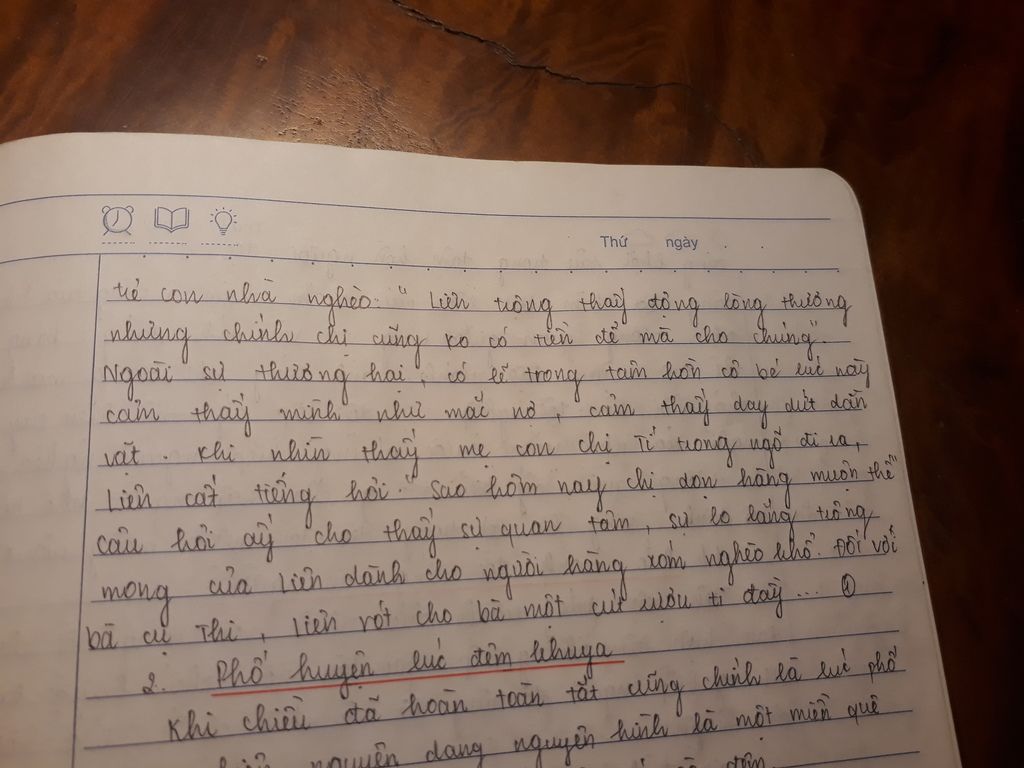 Thứ ngày
trẻ con nhà nghèo: "Liên trông thấy động lòng thương
nhưng chính chị cũng ko có tiền để mà cho chúng".
Ngoài sự thương hại, có lẽ trong tâm hồn cô bé lúc này
cảm thấy mình như mắc nợ, cảm thấy day dứt dằn
vặt. Khi nhìn thấy mẹ con chị Tí trong ngõ đi ra,
Liên cất tiếng hỏi: "Sao hôm nay chị dọn hàng muộn thế"
câu hỏi ấy cho thấy sự quan tâm, sự lo lắng trông
mong của Liên dành cho người hàng xóm nghèo khổ. Đối với
bà cụ Thi, Liên rót cho bà một cút rượu ti đầy...
2. Phố huyện lúc đêm khuya
Khi chiều đã hoàn toàn tắt cũng chính là lúc phố
nguyên dạng nguyên hình là một miền quê
đêm.